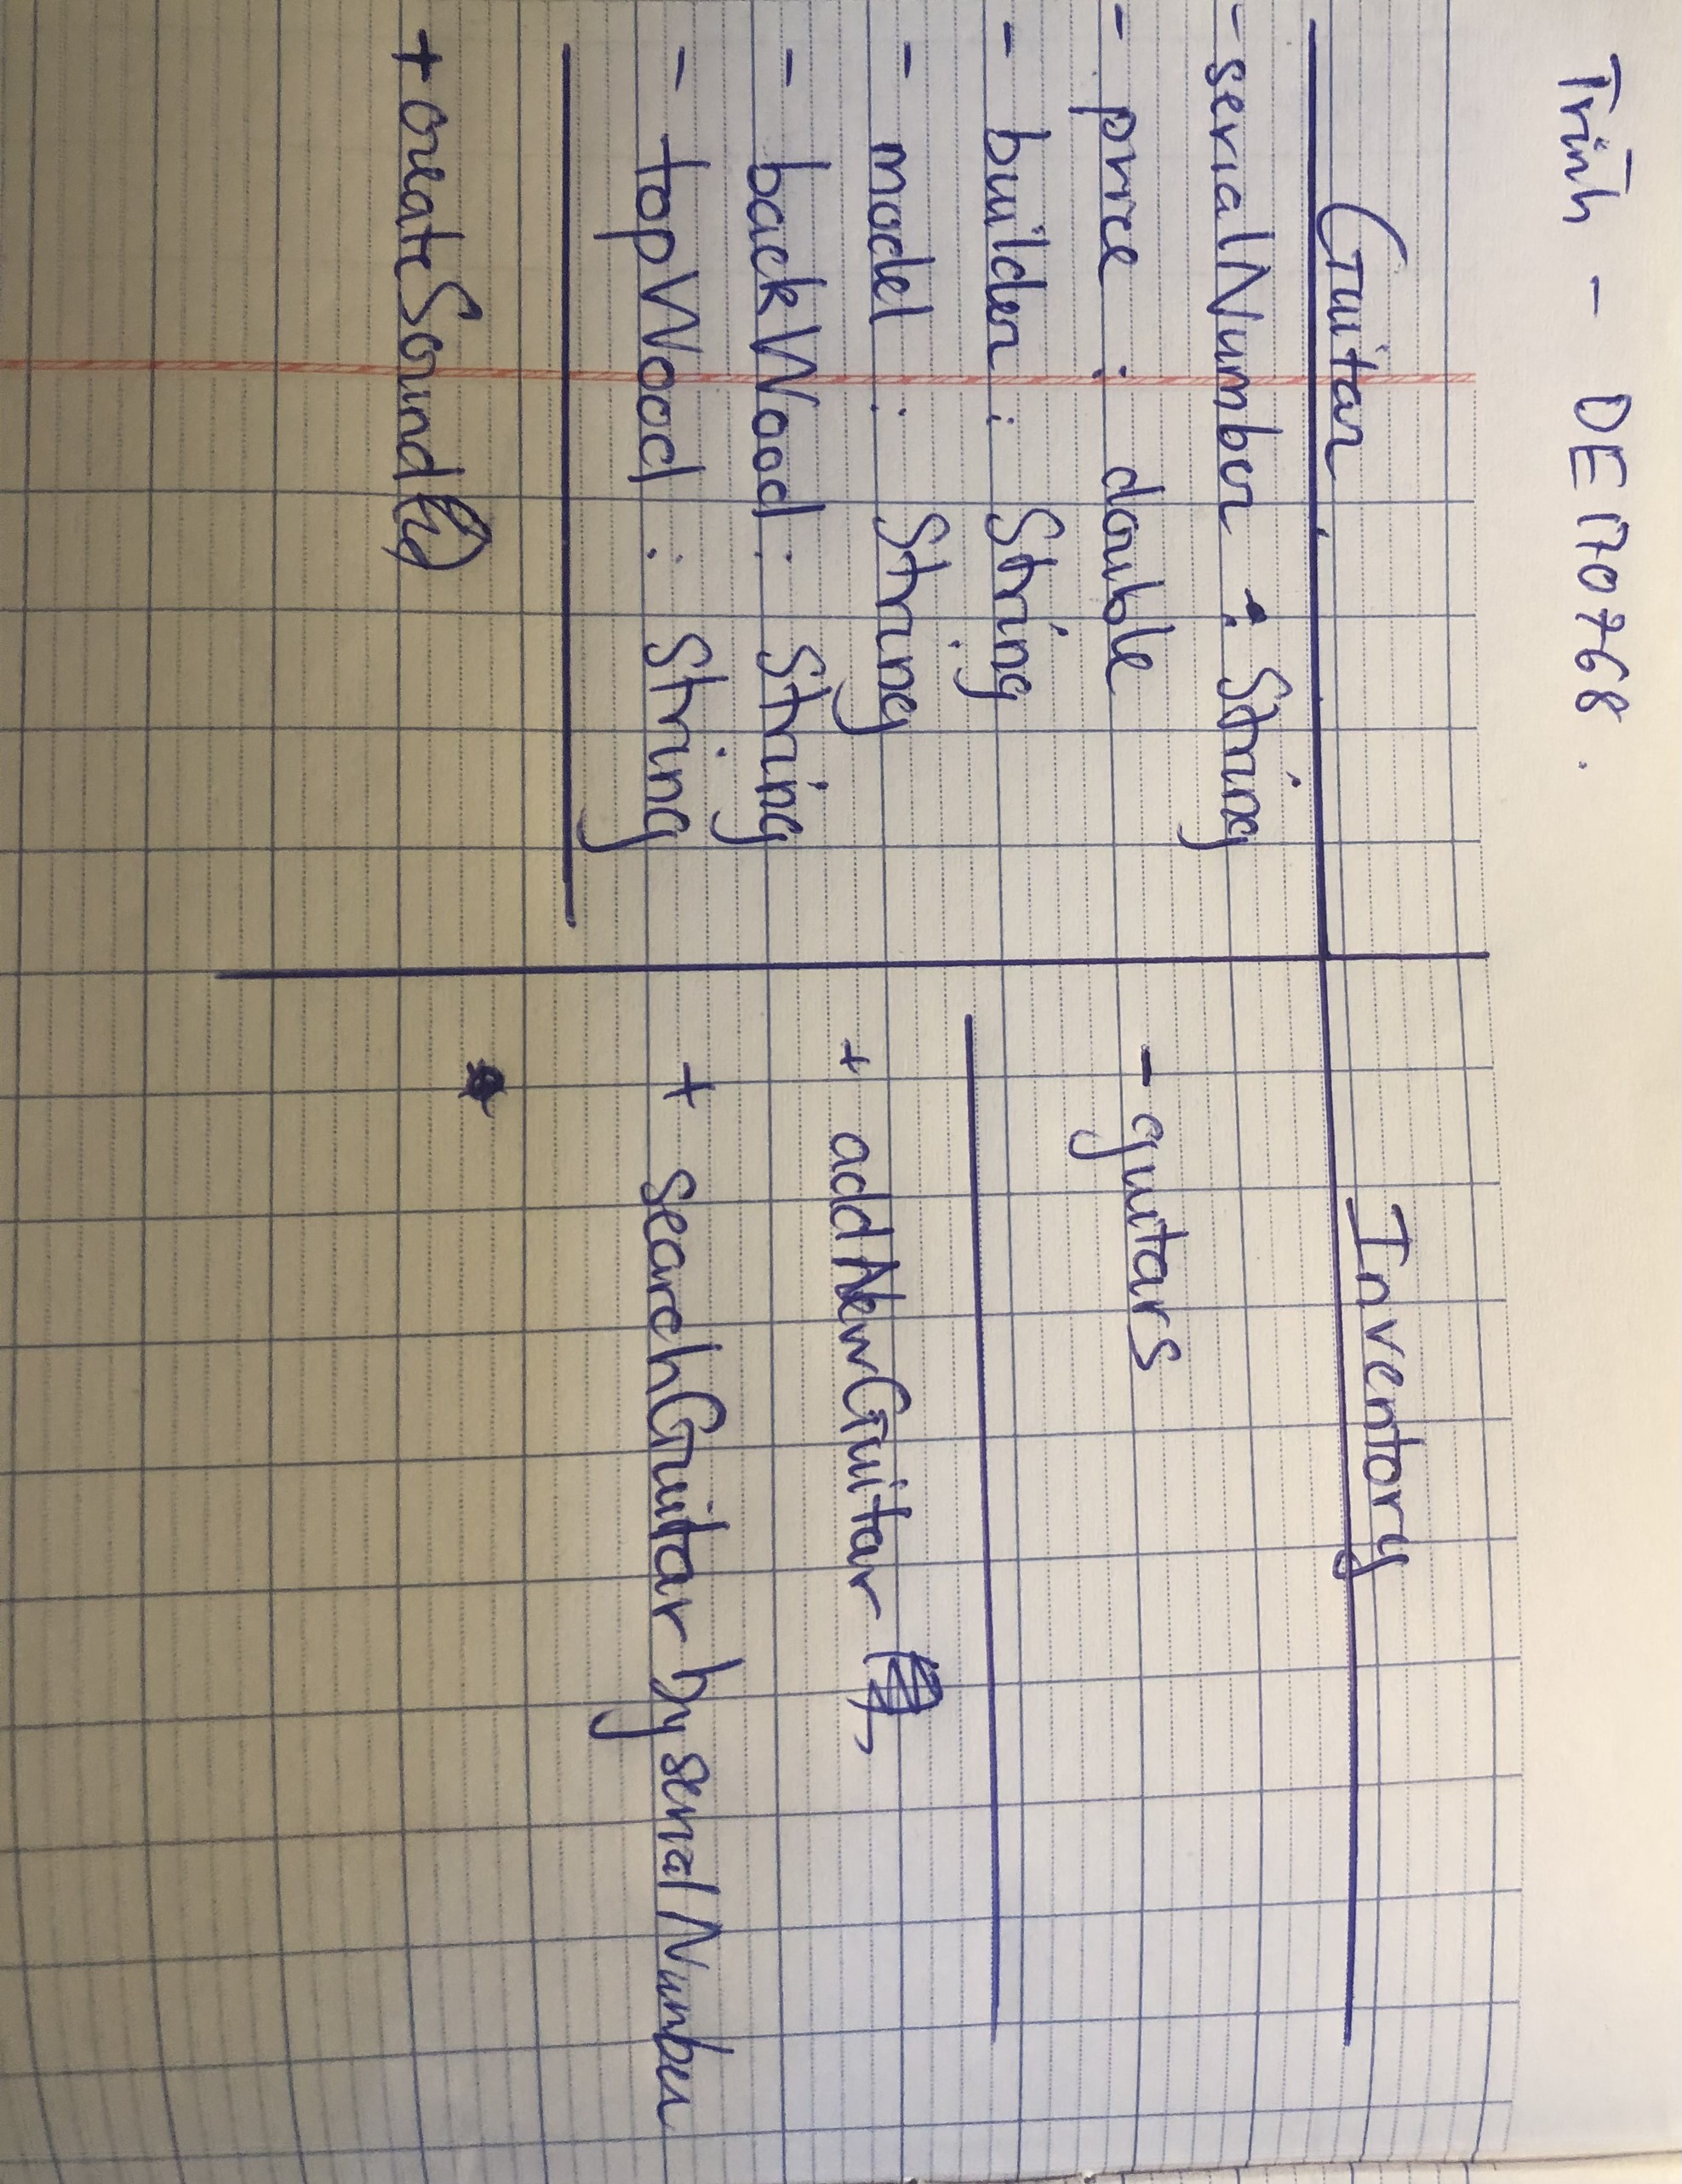 Trinh - DE170768.
Guitar
- serialNumber : String
- price : double
- builder : String
- model : String
- backWood : String
- topWood : String
+ createSound
Inventory
- guitars
+ addNewGuitar
+ searchGuitar by serialNumber